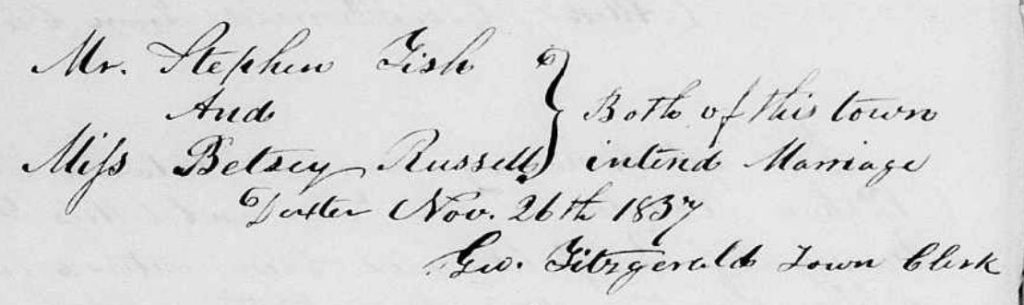 Mr. Stephen Fish
And
Miss Betsey Russell
Both of this town
intend Marriage
Dexter Nov. 26th 1837
Geo. Fitzgerald Town Clerk